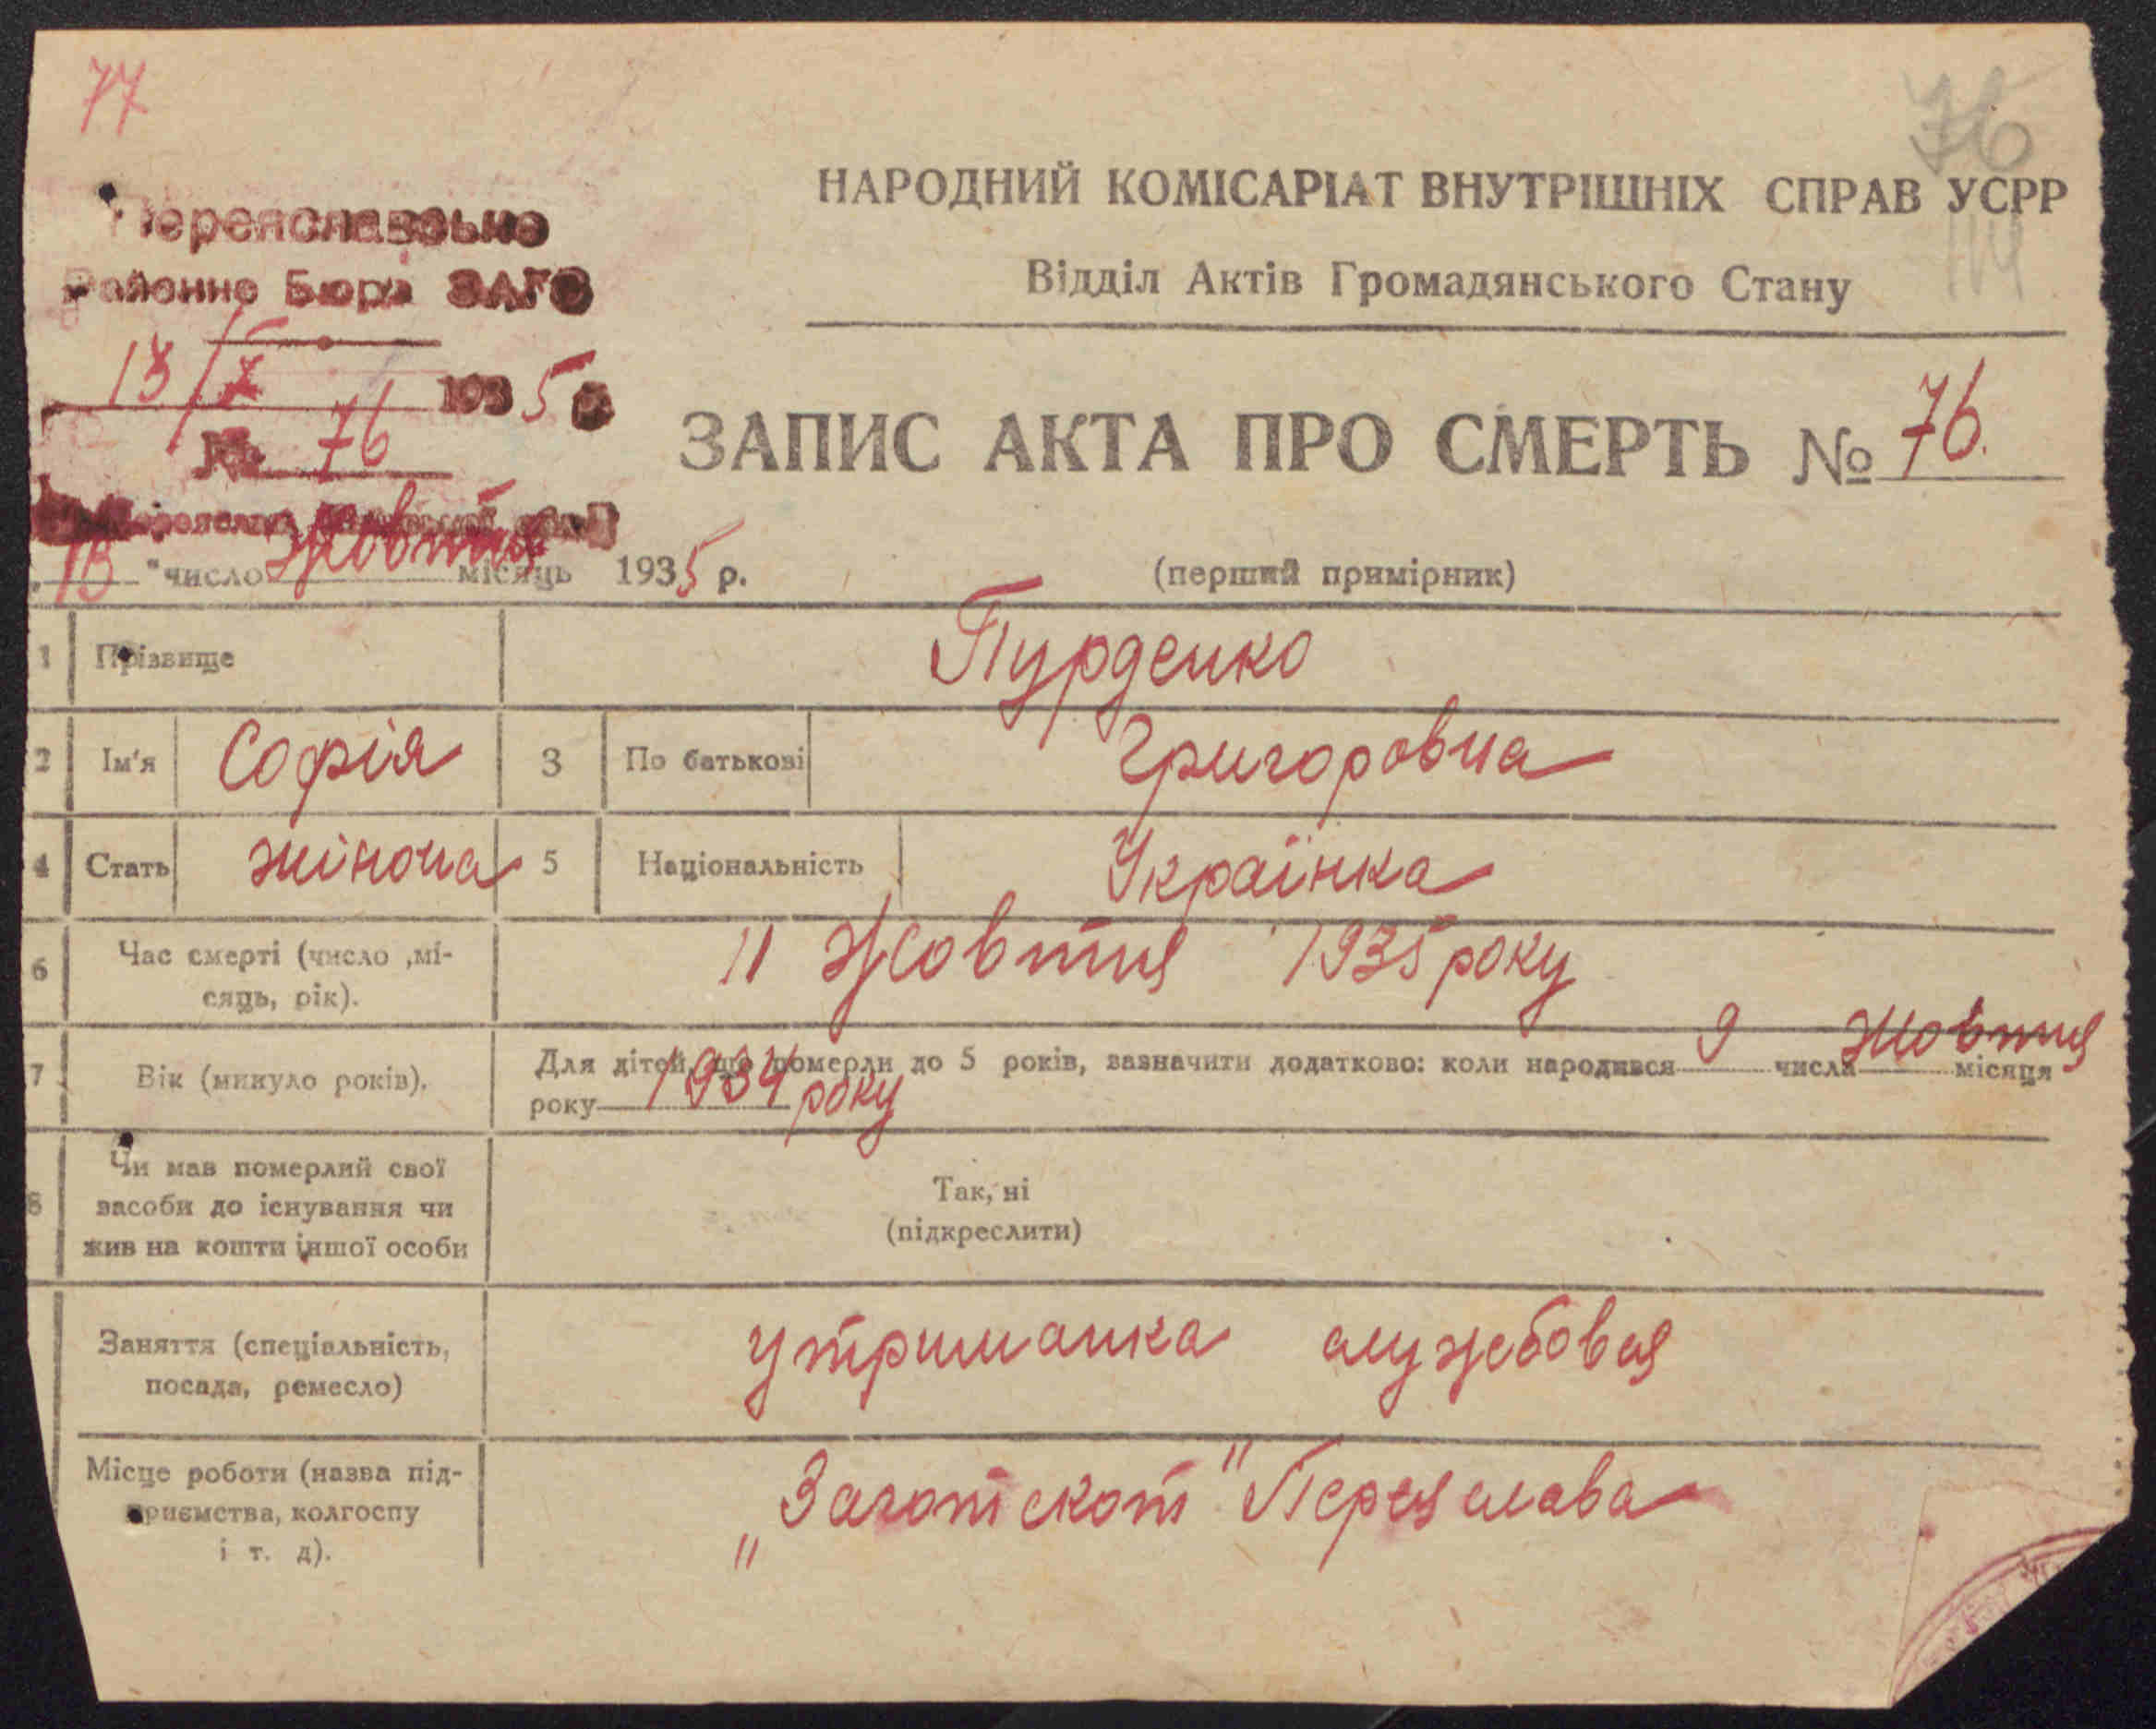 77
76
114
Переяславське
Районне Бюро ЗАГС
13/X 1935 р
№ 76
НАРОДНИЙ КОМІСАРІАТ ВНУТРІШНІХ СПРАВ УСРР
Відділ Актів Громадянського Стану
ЗАПИС АКТА ПРО СМЕРТЬ № 76.
„13" число Жовтня місяць 1935 р.
(перший примірник)
1 Прізвище Пурденко
2 Ім'я Софія 3 По батькові Григоровна
4 Стать жіноча 5 Національність Українка
6 Час смерті (число ,мі-
сяць, рік).
11 Жовтня 1935 року
7 Вік (минуло років).
Для дітей, що померли до 5 років, зазначити додатково: коли народився 9 числа Жовтня місяця
року 1934 року
8 Чи мав померлий свої
засоби до існування чи
жив на кошти іншої особи
Так, ні
(підкреслити)
Заняття (спеціальність,
посада, ремесло)
утриманка службовця
Місце роботи (назва під-
приємства, колгоспу
і т. д).
„Заготскот" Переяслава